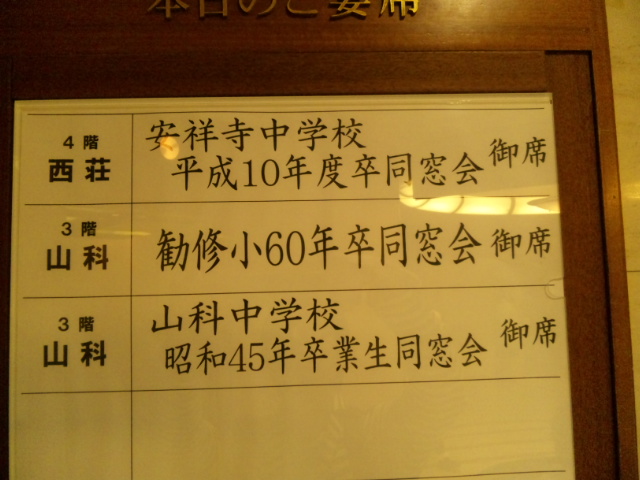 本日のご宴席
4階
西荘
安祥寺中学校
平成10年度卒同窓会 御席
3階
山科
勧修小60年卒同窓会 御席
3階
山科
山科中学校
昭和45年卒業生同窓会 御席